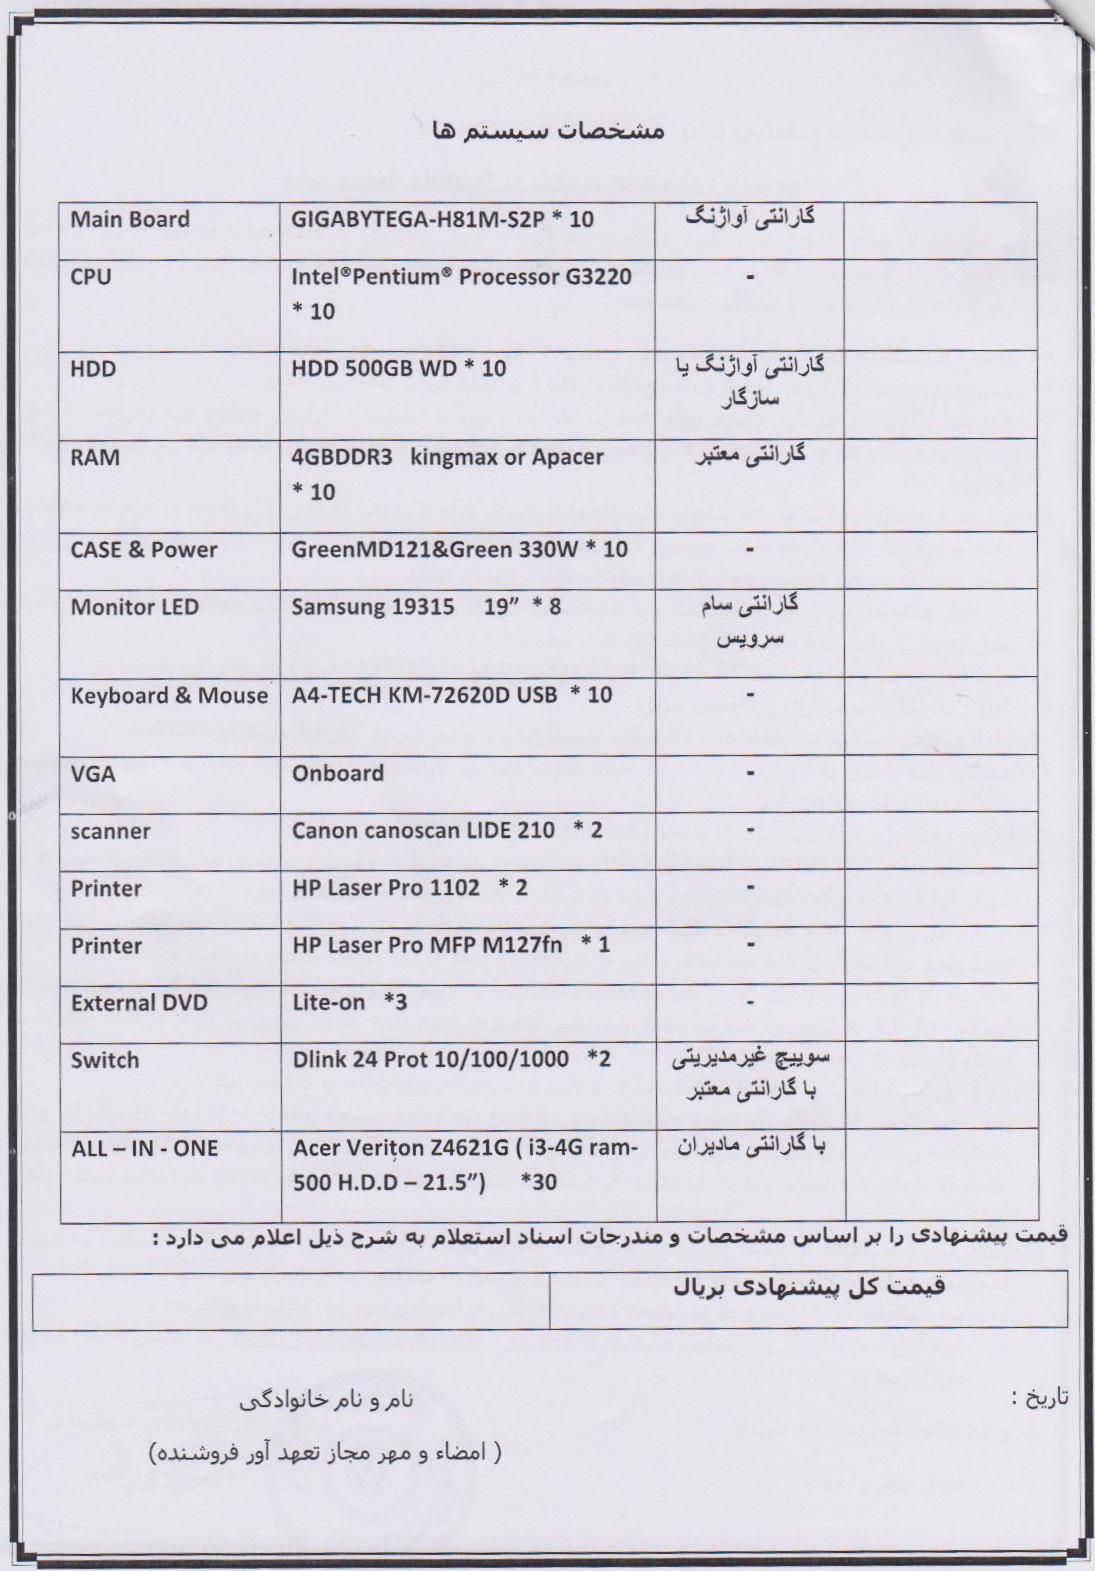 مشخصات سیستم ها
Main Board GIGABYTEGA-H81M-S2P * 10 گارانتی آواژنگ
CPU Intel®Pentium® Processor G3220 -
* 10
HDD HDD 500GB WD * 10 گارانتی آواژنگ یا
سازگار
RAM 4GBDDR3 kingmax or Apacer گارانتی معتبر
* 10
CASE & Power GreenMD121&Green 330W * 10 -
Monitor LED Samsung 19315 19” * 8 گارانتی سام
سرویس
Keyboard & Mouse A4-TECH KM-72620D USB * 10 -
VGA Onboard -
scanner Canon canoscan LIDE 210 * 2 -
Printer HP Laser Pro 1102 * 2 -
Printer HP Laser Pro MFP M127fn * 1 -
External DVD Lite-on *3 -
Switch Dlink 24 Prot 10/100/1000 *2 سوییچ غیرمدیریتی
با گارانتی معتبر
ALL – IN - ONE Acer Veriton Z4621G ( i3-4G ram- با گارانتی مادیران
500 H.D.D – 21.5”) *30
قیمت پیشنهادی را بر اساس مشخصات و مندرجات اسناد استعلام به شرح ذیل اعلام می دارد :
قیمت کل پیشنهادی بریال
تاریخ : نام و نام خانوادگی
( امضاء و مهر مجاز تعهد آور فروشنده)